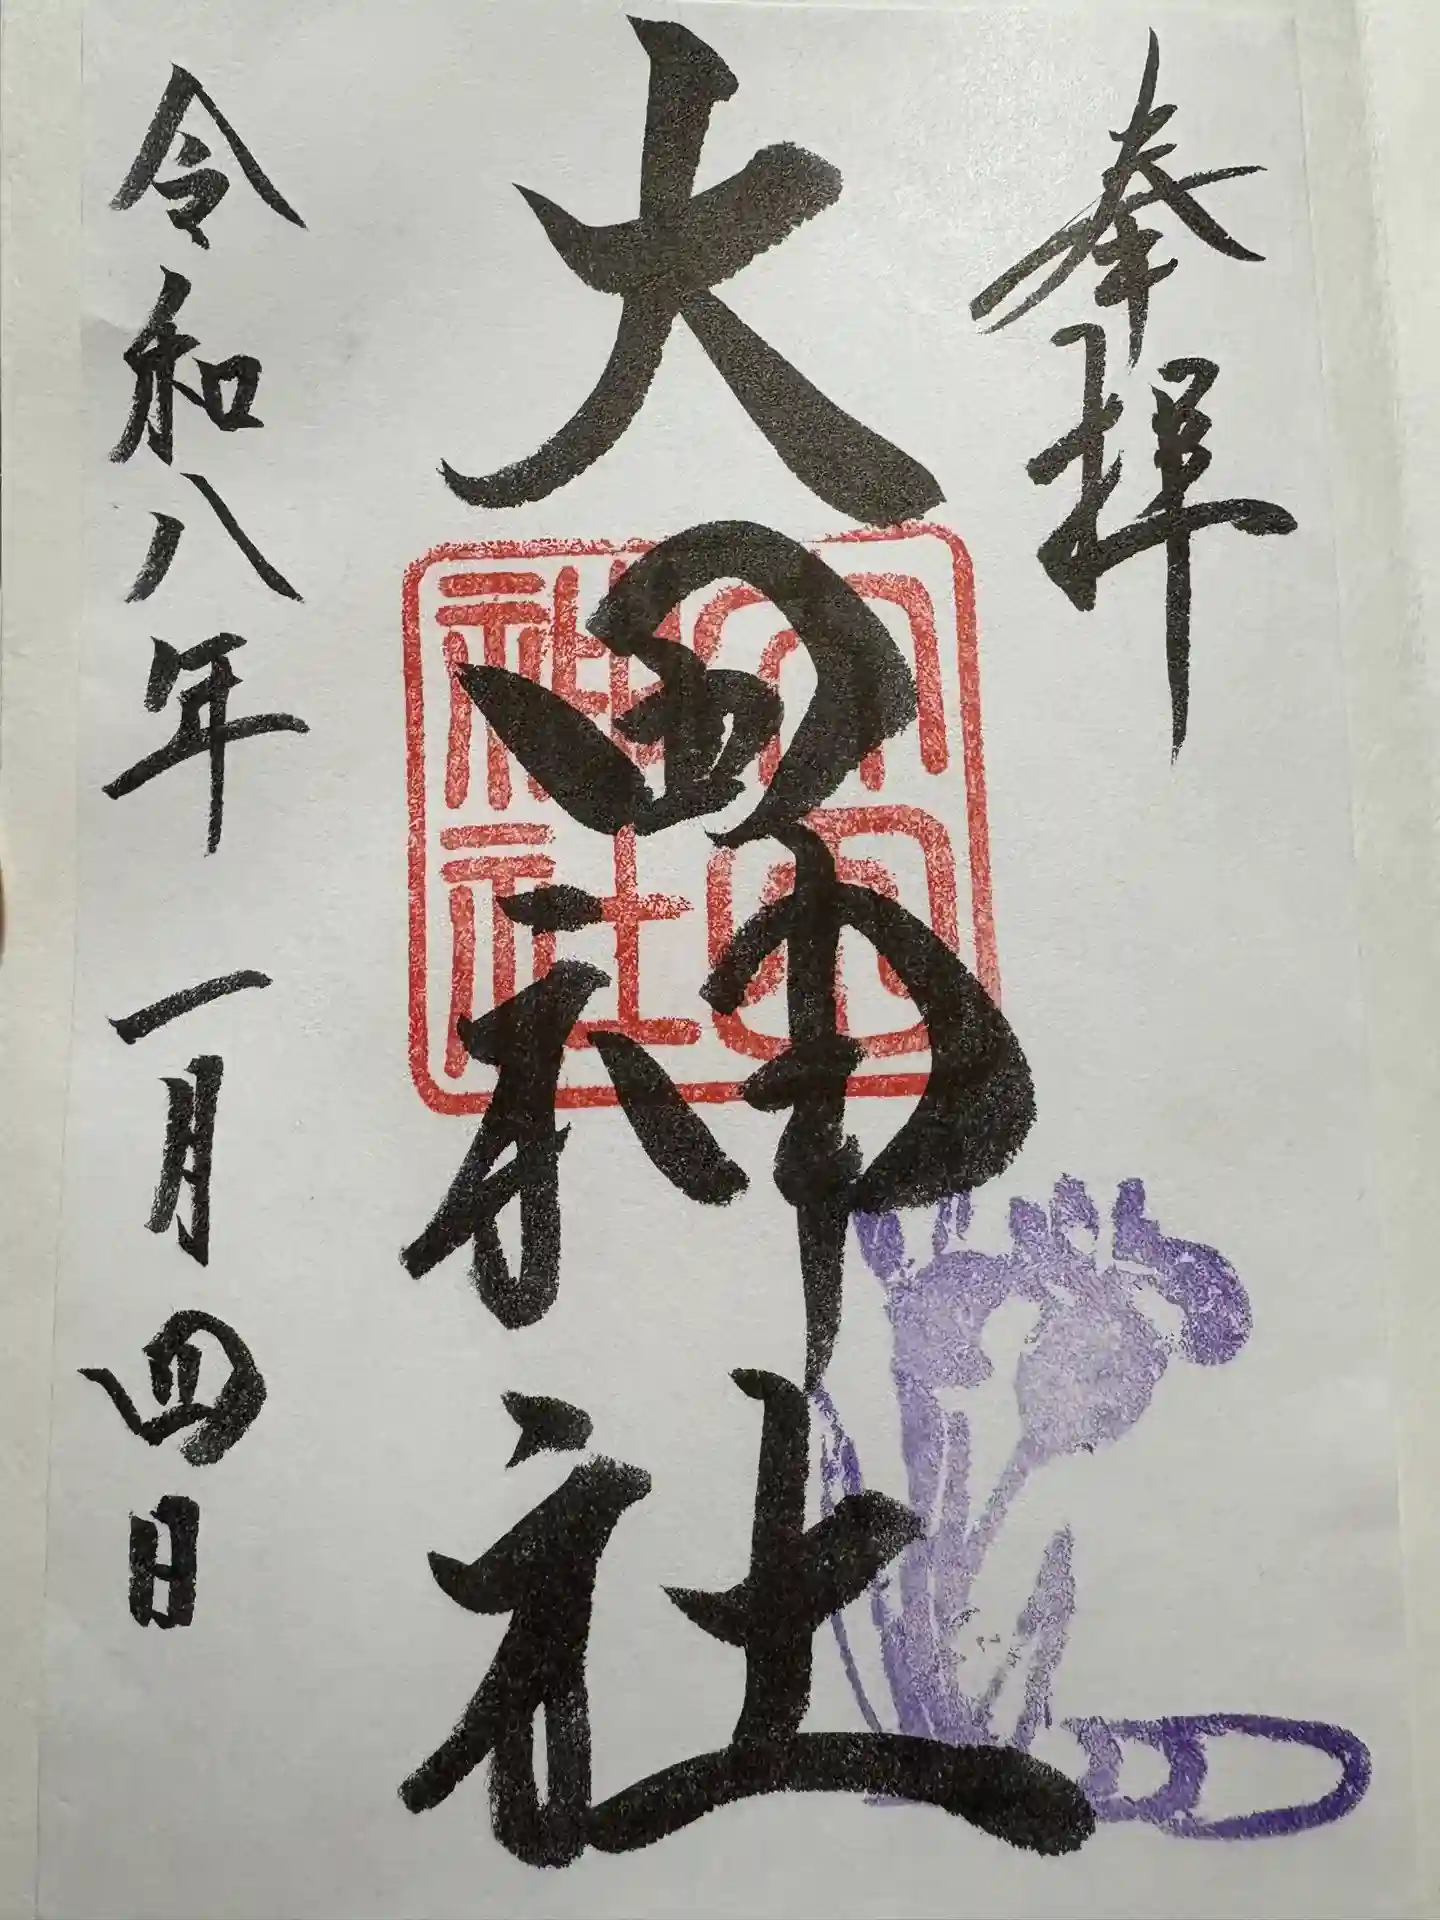 奉拝
大田神社
大田神社
令和八年一月四日